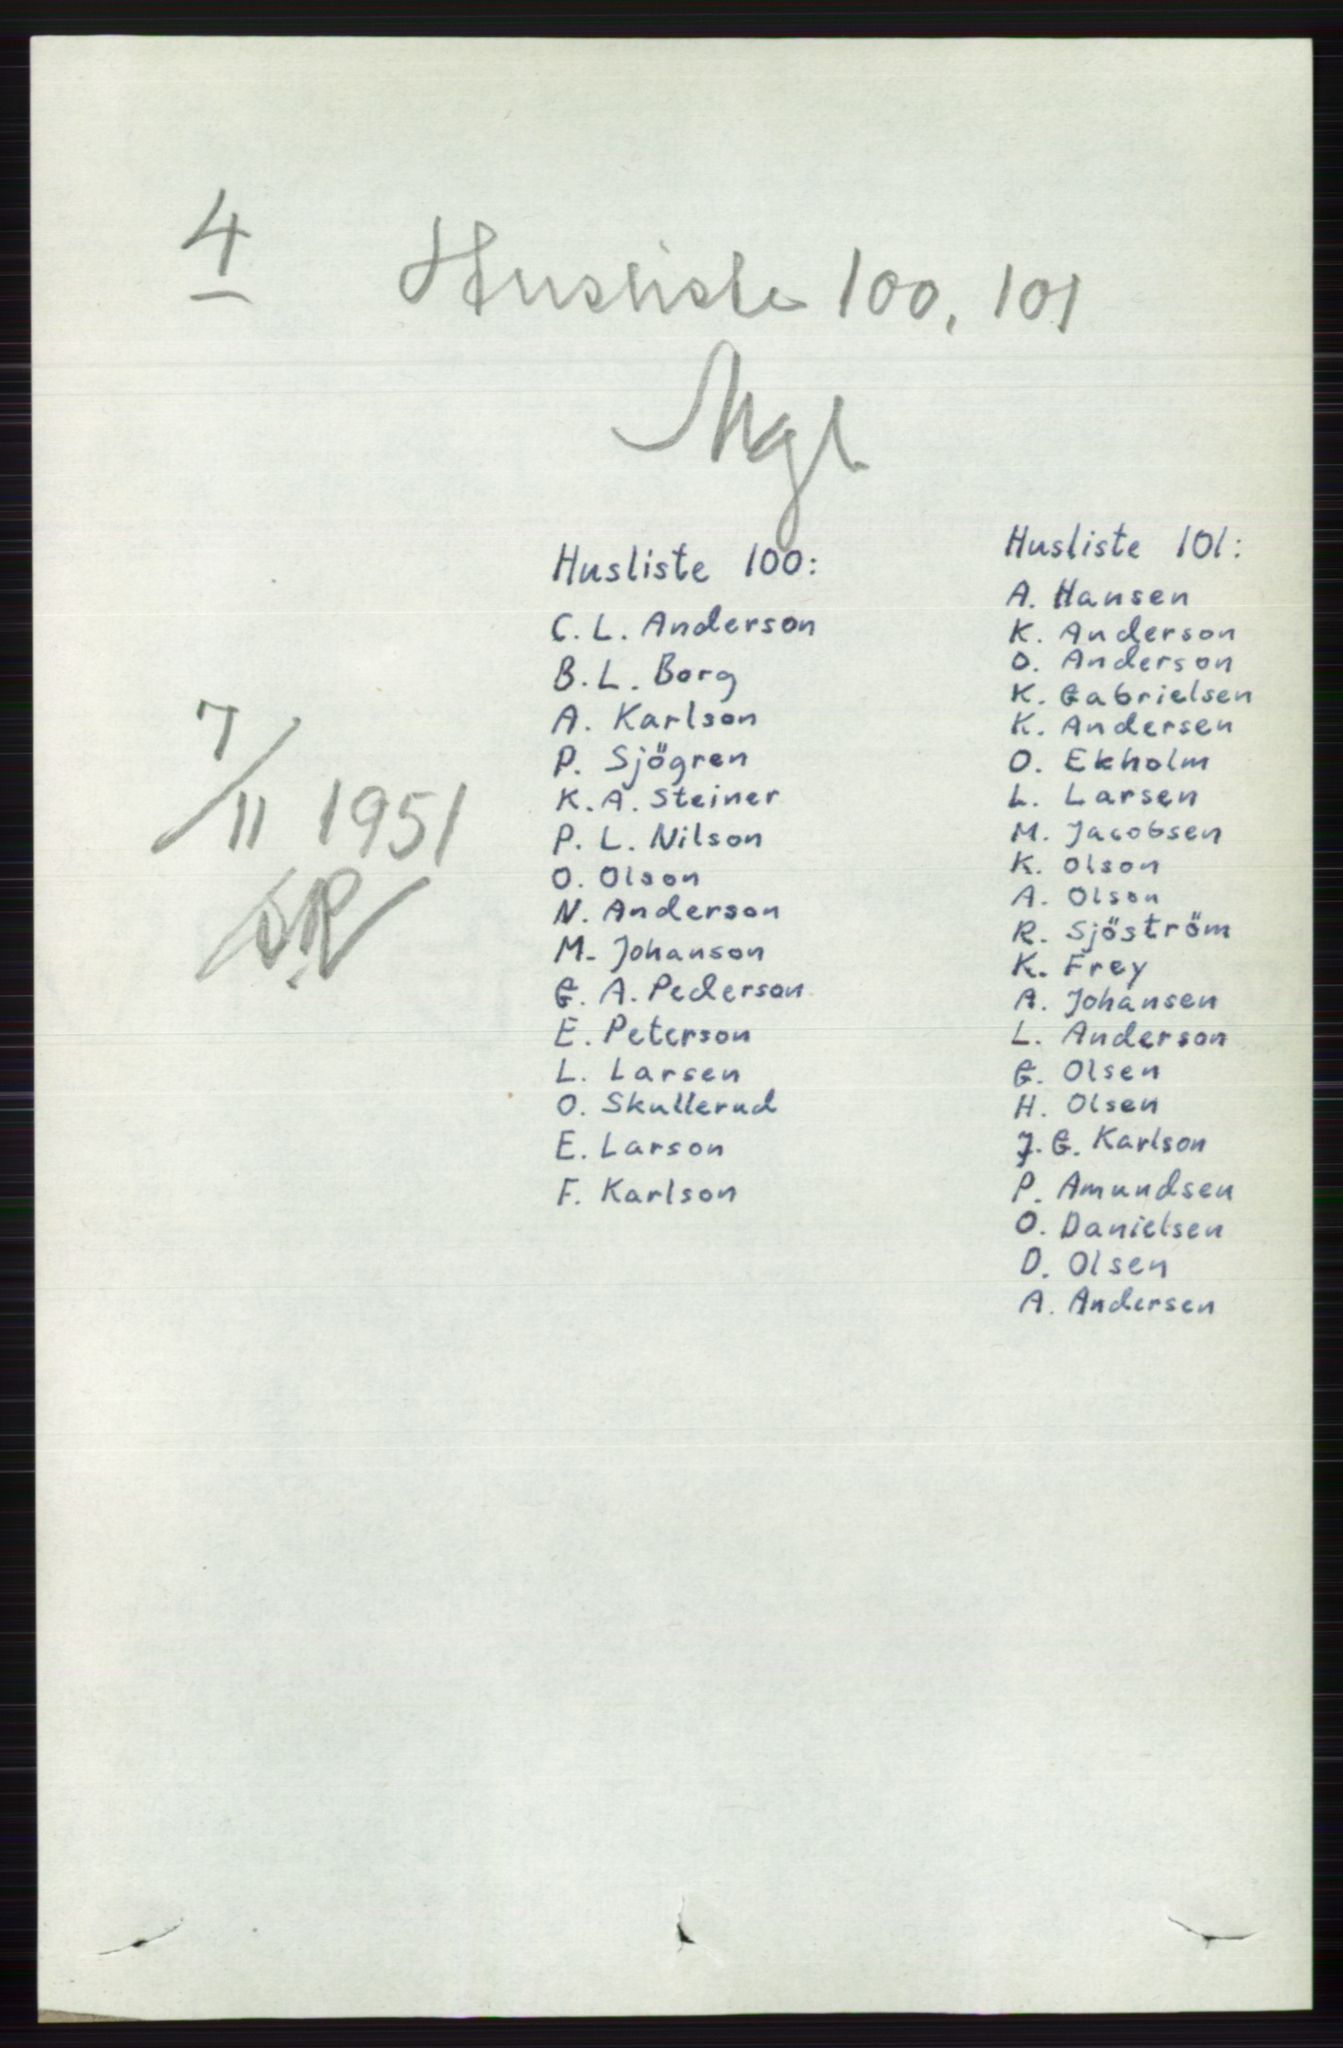 4
Husliste 100, 101
Mgl.
Husliste 100:
C. L. Anderson
B. L. Borg
A. Karlson
P. Sjögren
K. A. Steiner
P. L. Nilson
O. Olson
N. Anderson
M. Johanson
G. A. Pederson
E. Peterson
L. Larsen
O. Skullerud
E. Larson
F. Karlson
Husliste 101:
A. Hansen
K. Anderson
O. Anderson
K. Gabrielsen
K. Andersen
O. Ekholm
L. Larsen
M. Jacobsen
K. Olson
A. Olson
R. Sjöström
K. Frey
A. Johansen
L. Anderson
G. Olsen
H. Olsen
J. G. Karlson
P. Amundsen
O. Danielsen
D. Olsen
A. Andersen
7/11 1951